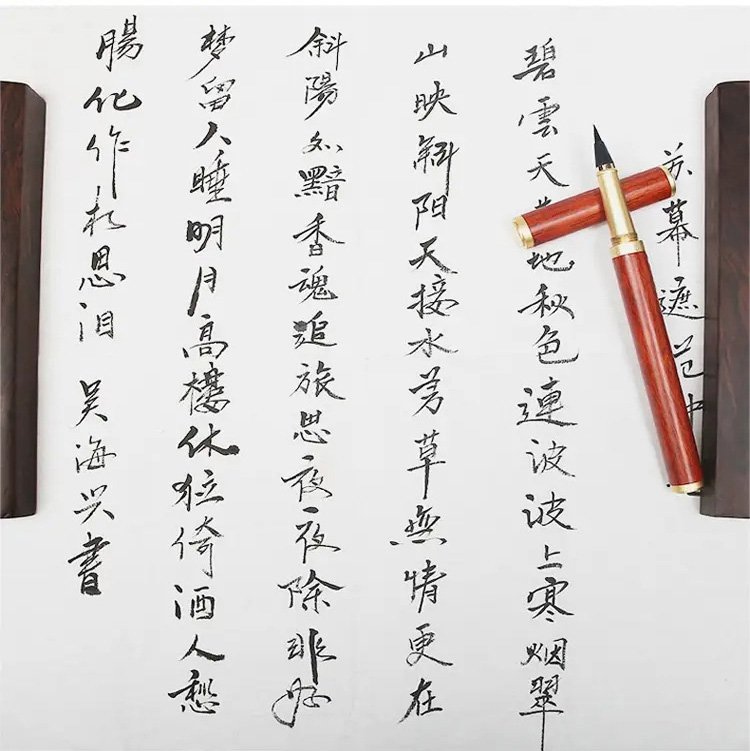 苏幕遮范
碧雲天地秋色連波波上寒烟翠
山映斜阳天接水芳草無情更在
斜陽外黯香魂追旅思夜夜除非好
梦留人睡明月高樓休独倚酒入愁
腸化作相思泪 吴海兴書